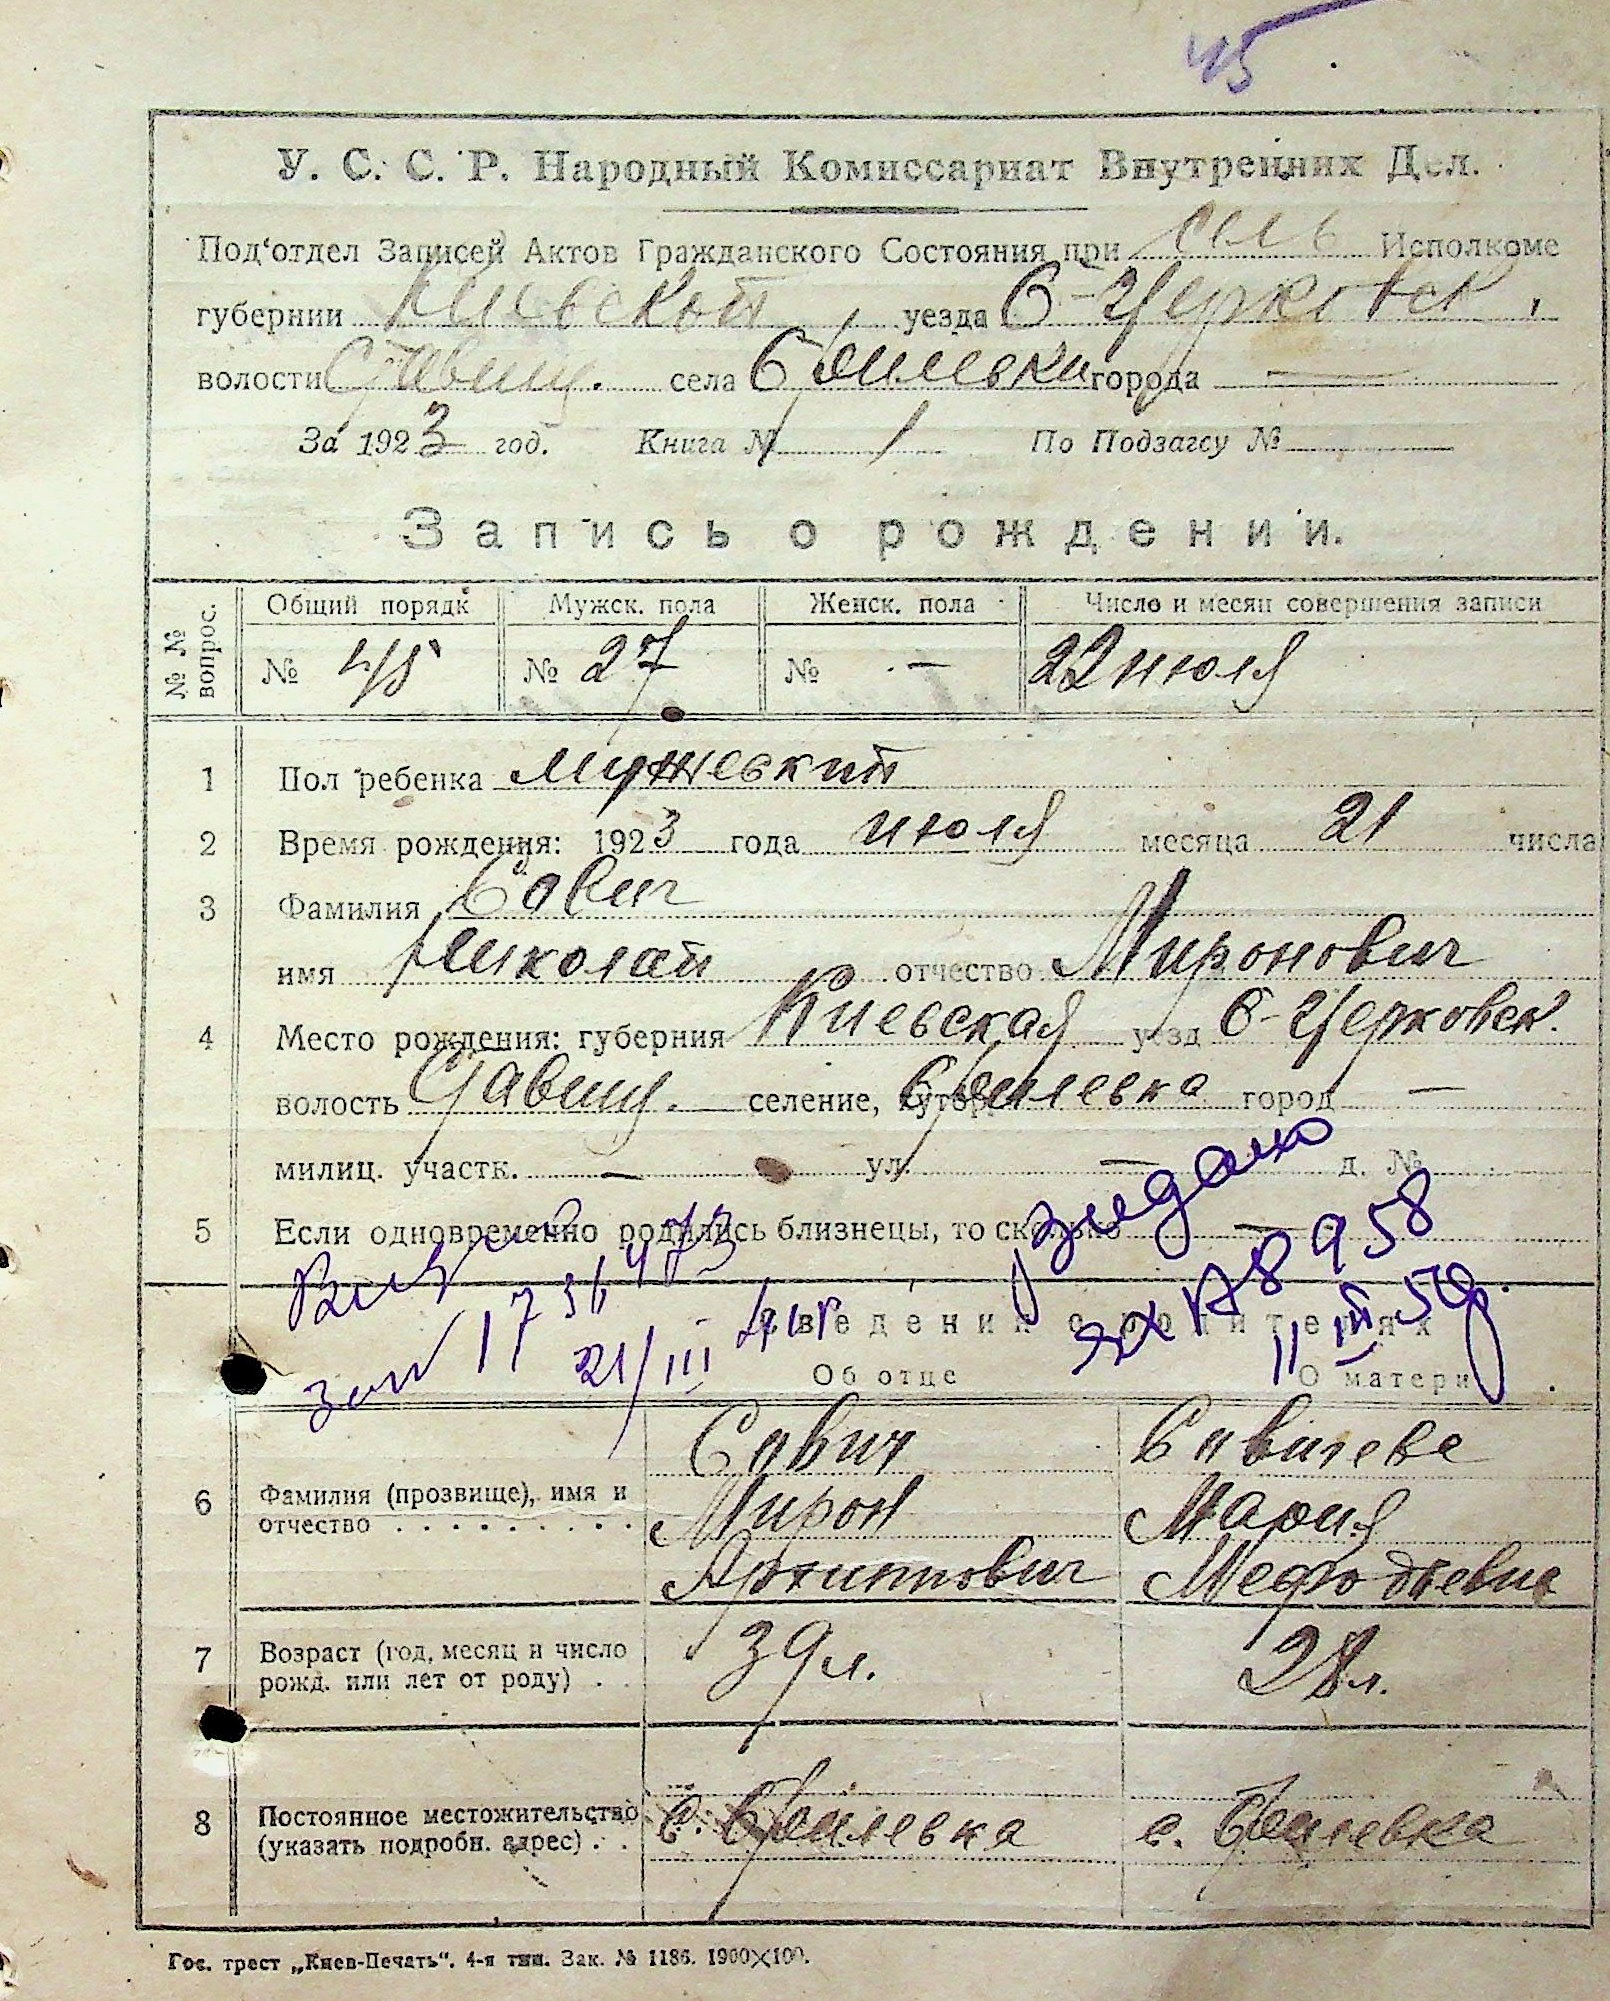 45
У. С. С. Р. Народный Комиссариат Внутренних Дел.
Под'отдел Записей Актов Гражданского Состояния при сель Исполкоме
губернии Киевской уезда Б-Церковск.
волости Ставищ. села города —
За 1923 год. Книга № 1 По Подзагсу № —
Запись о рождении.
№ № вопрос. Общий порядк Мужск. пола Женск. пола Число и месяц совершения записи
№ 45 № 27 № — 22 июля
1 Пол ребенка мужеский
2 Время рождения: 1923 года июля месяца 21 числа
3 Фамилия Савич
имя Николай отчество Миронович
4 Место рождения: губерния Киевская уезд Б-Церковск.
волость Ставищ. селение, хутор город —
милиц. участк. — ул. — д. №
5 Если одновременно родились близнецы, то сколько —
Видано
21/III
11 III
Сведения о родителях
Об отце О матери
6 Фамилия (прозвище), имя и отчество . . . . . . . . . .
Савич Савичева
Мирон Мария
Архиппович Мефодьевна
7 Возраст (год, месяц и число рожд. или лет от роду) . .
39 л. 28 л.
8 Постоянное местожительство (указать подробн. адрес) . .
с. с.
Гос. трест „Киев-Печать“. 4-я тип. Зак. № 1186. 1900×100.